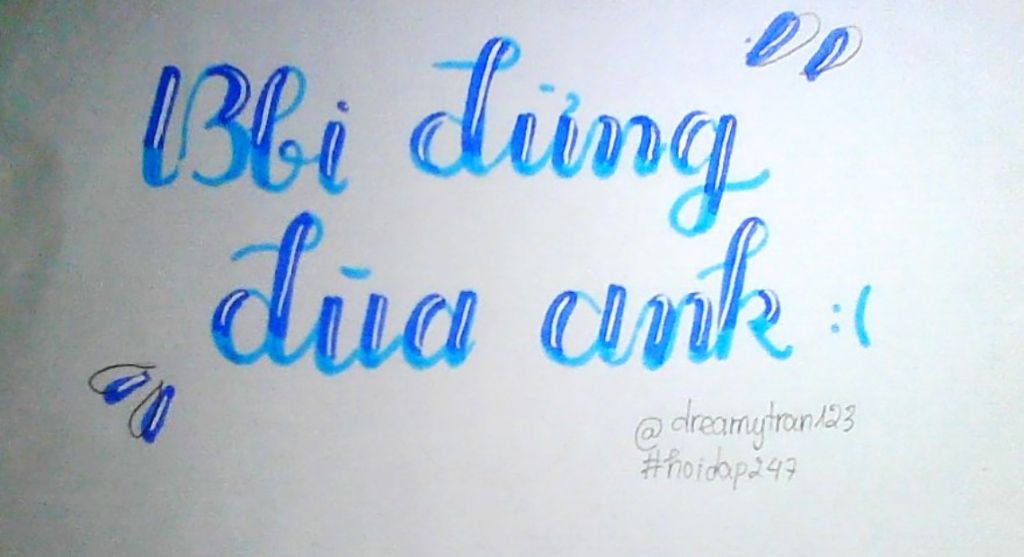 Bbi đừng
đùa ank :(
@dreamytran123
#hoidap247